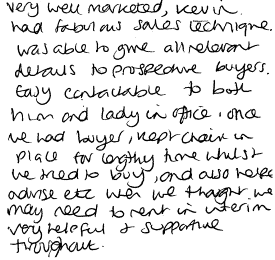 very well marketed, Kevin.
had fabulous sales technique.
was able to give all relevant
details to prospective buyers.
Easy contactable to both
him and lady in office, once
we had buyer, kept chain in
place for lengthy time whilst
we tried to buy, and also helped
advise etc when we thought we
may need to rent in interim
very helpful & supportive
throughout.